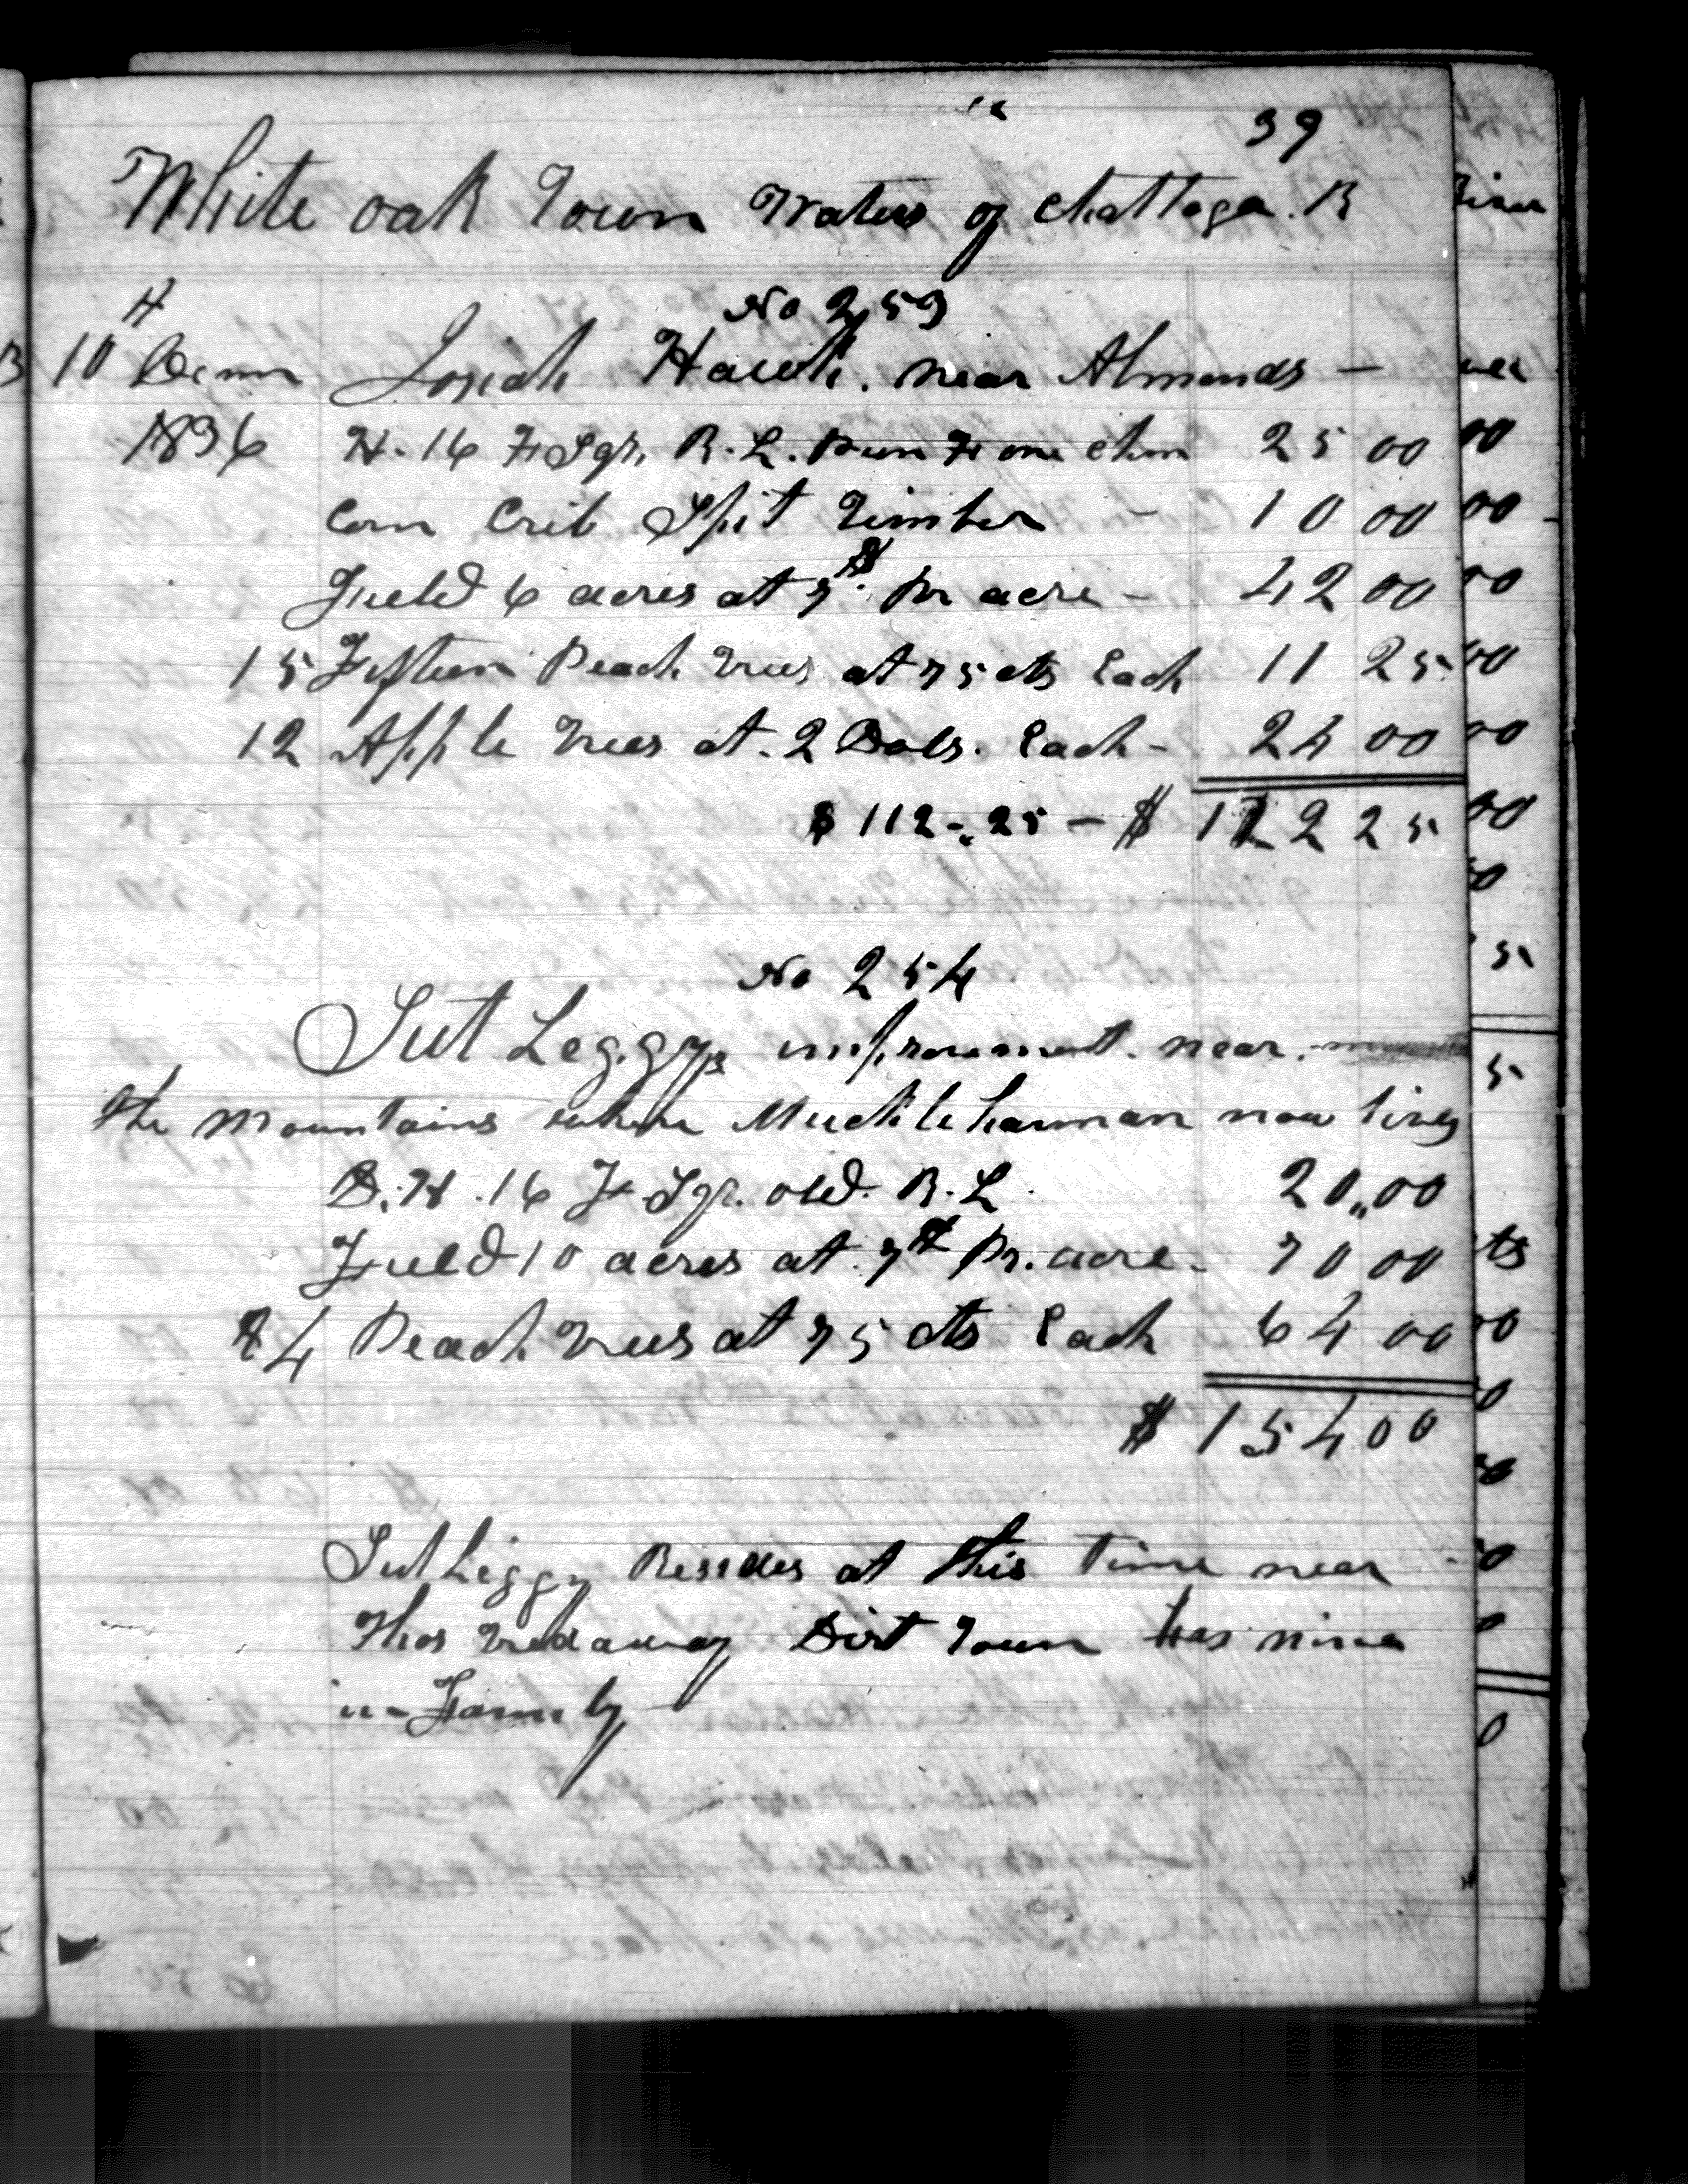 39
White oak Town Waters of Chattoga. R
No 253
10 Decmr Josiah Hawk. near Almonds —
1836 H. 16 Ft Sqr, R. L. Pun Ft one chm 25 00
Corn Crib Split Timber - 10 00
Field 6 acres at 7$. pr acre - 42 00
15 Fifteen Peach trees at 75 cts Each 11 25
12 Apple trees at. 2 Dols. Each - 24 00
$ 112-.25 — $ 112 25
No 254
Sut Leggys improvement. near.
the mountains where Muckleharman now lives
D. H. 16 Ft Sqr. old R. L. 20,,00
Field 10 acres at 7$ pr. acre - 70 00
84 Peach trees at 75 cts Each 64 00
$ 154 00
Sut Leggy Resides at this time near
Thos Tredaway Dirt Town has nine
in Family